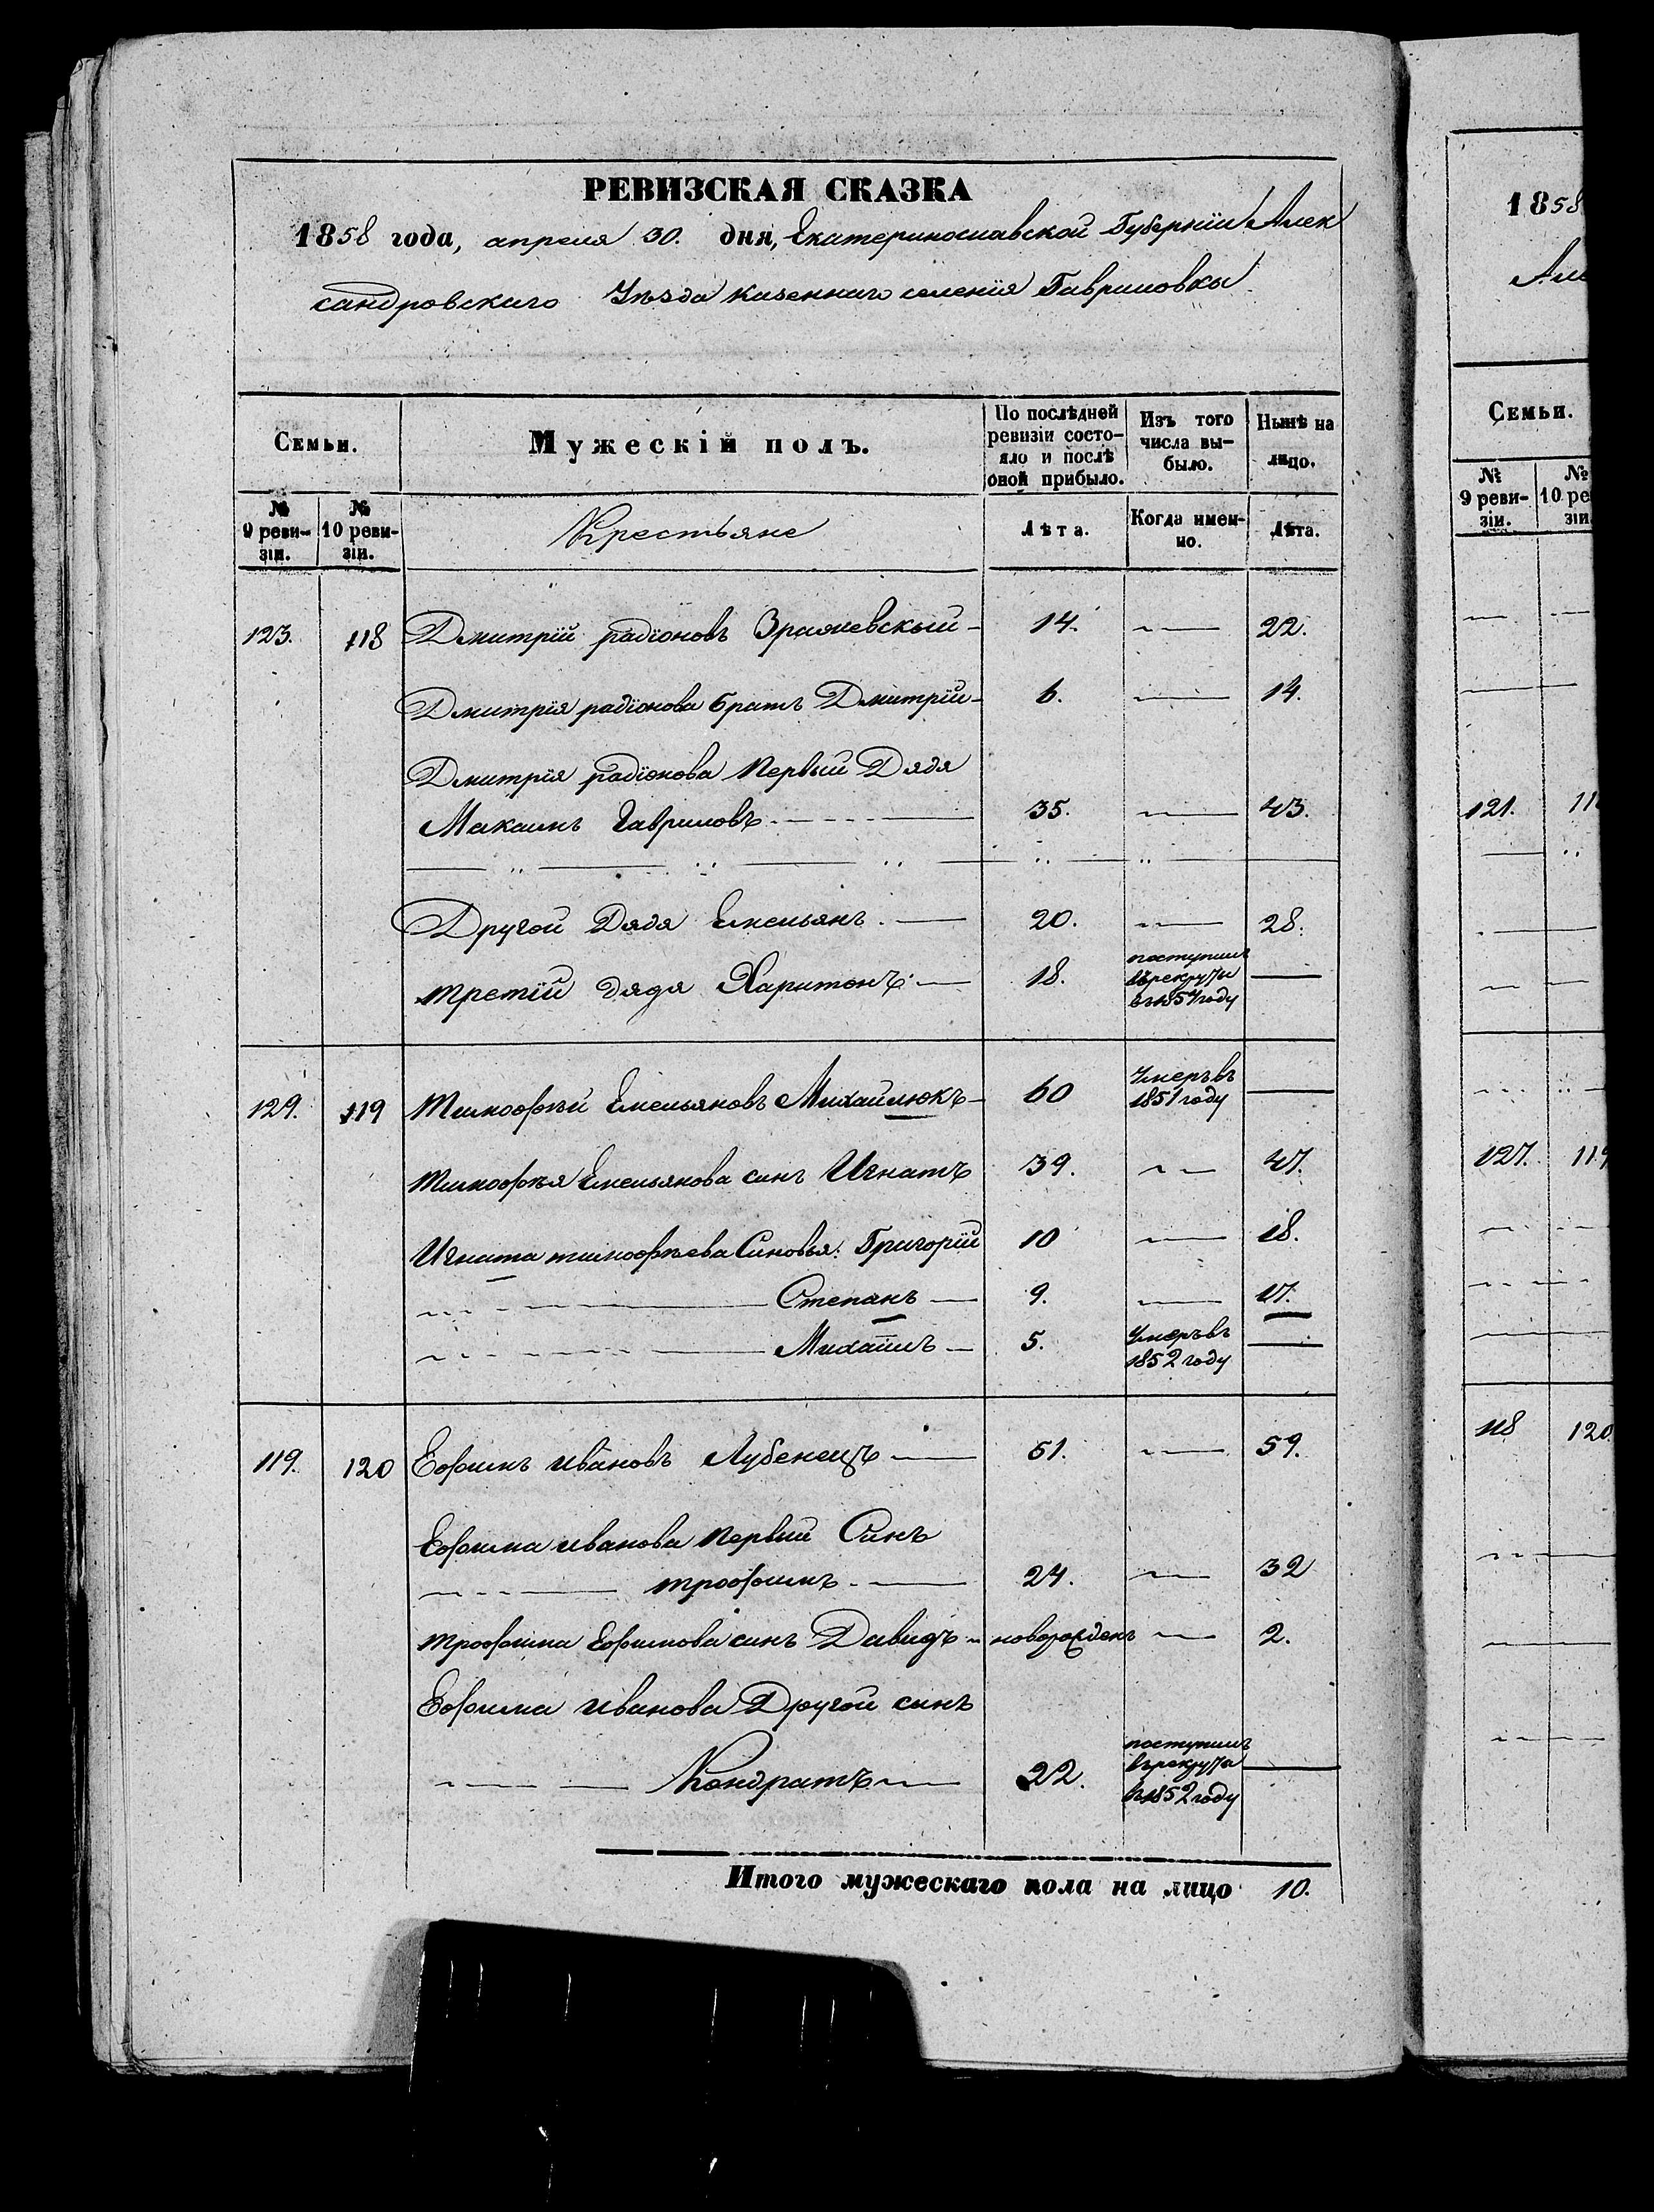 РЕВИЗСКАЯ СКАЗКА
1858 года, апреля 30. дня, Екатеринославской Губернїи Алек
сандровскаго Уѣзда казеннаго селенїя Гавриловкы
Семьи. Мужескій полъ. По послѣдней ревизіи состояло и послѣ оной прибыло. Изъ того числа выбыло. Нынѣ на лицо.
№ 9 ревизіи. № 10 ревизіи. Крестьяне Лѣта. Когда именно. Лѣта.
123. 118 Дмитрїй радїоновъ 14. 22.
Дмитрїя радїонова братъ Дмитрїй 6. 14.
Дмитрїя радїонова первый Дядя
Максимъ Гавриловъ 35. 43.
Другой Дядя Емельянъ 20. 28.
третїй дядя Харитонъ 18. поступилъ
въ рекруты
въ 1854 году
129. 119 тимофѣй Емельяновъ Михайлюкъ 60 Умеръ въ
1851 году
тимофѣя Емельянова синъ Игнатъ 39. 47.
Игната тимофѣева Синовья: Григорїй 10 18.
Степанъ 9. 17.
Михаилъ 5. Умеръ въ
1852 году
119. 120 Ефимъ ивановъ Лубенецъ 51. 59.
Ефима иванова первий Синъ
трофимъ 24. 32
трофима Ефимова синъ Давидъ новорожденъ 2.
Ефима иванова Другой синъ
Кондратъ 22. поступилъ
въ рекруты
въ 1852 году
Итого мужескаго пола на лицо 10.
1858
Але
Семьи.
№ 9 ревизіи. № 10 ре зіи
121. 11
127. 119
118 120.